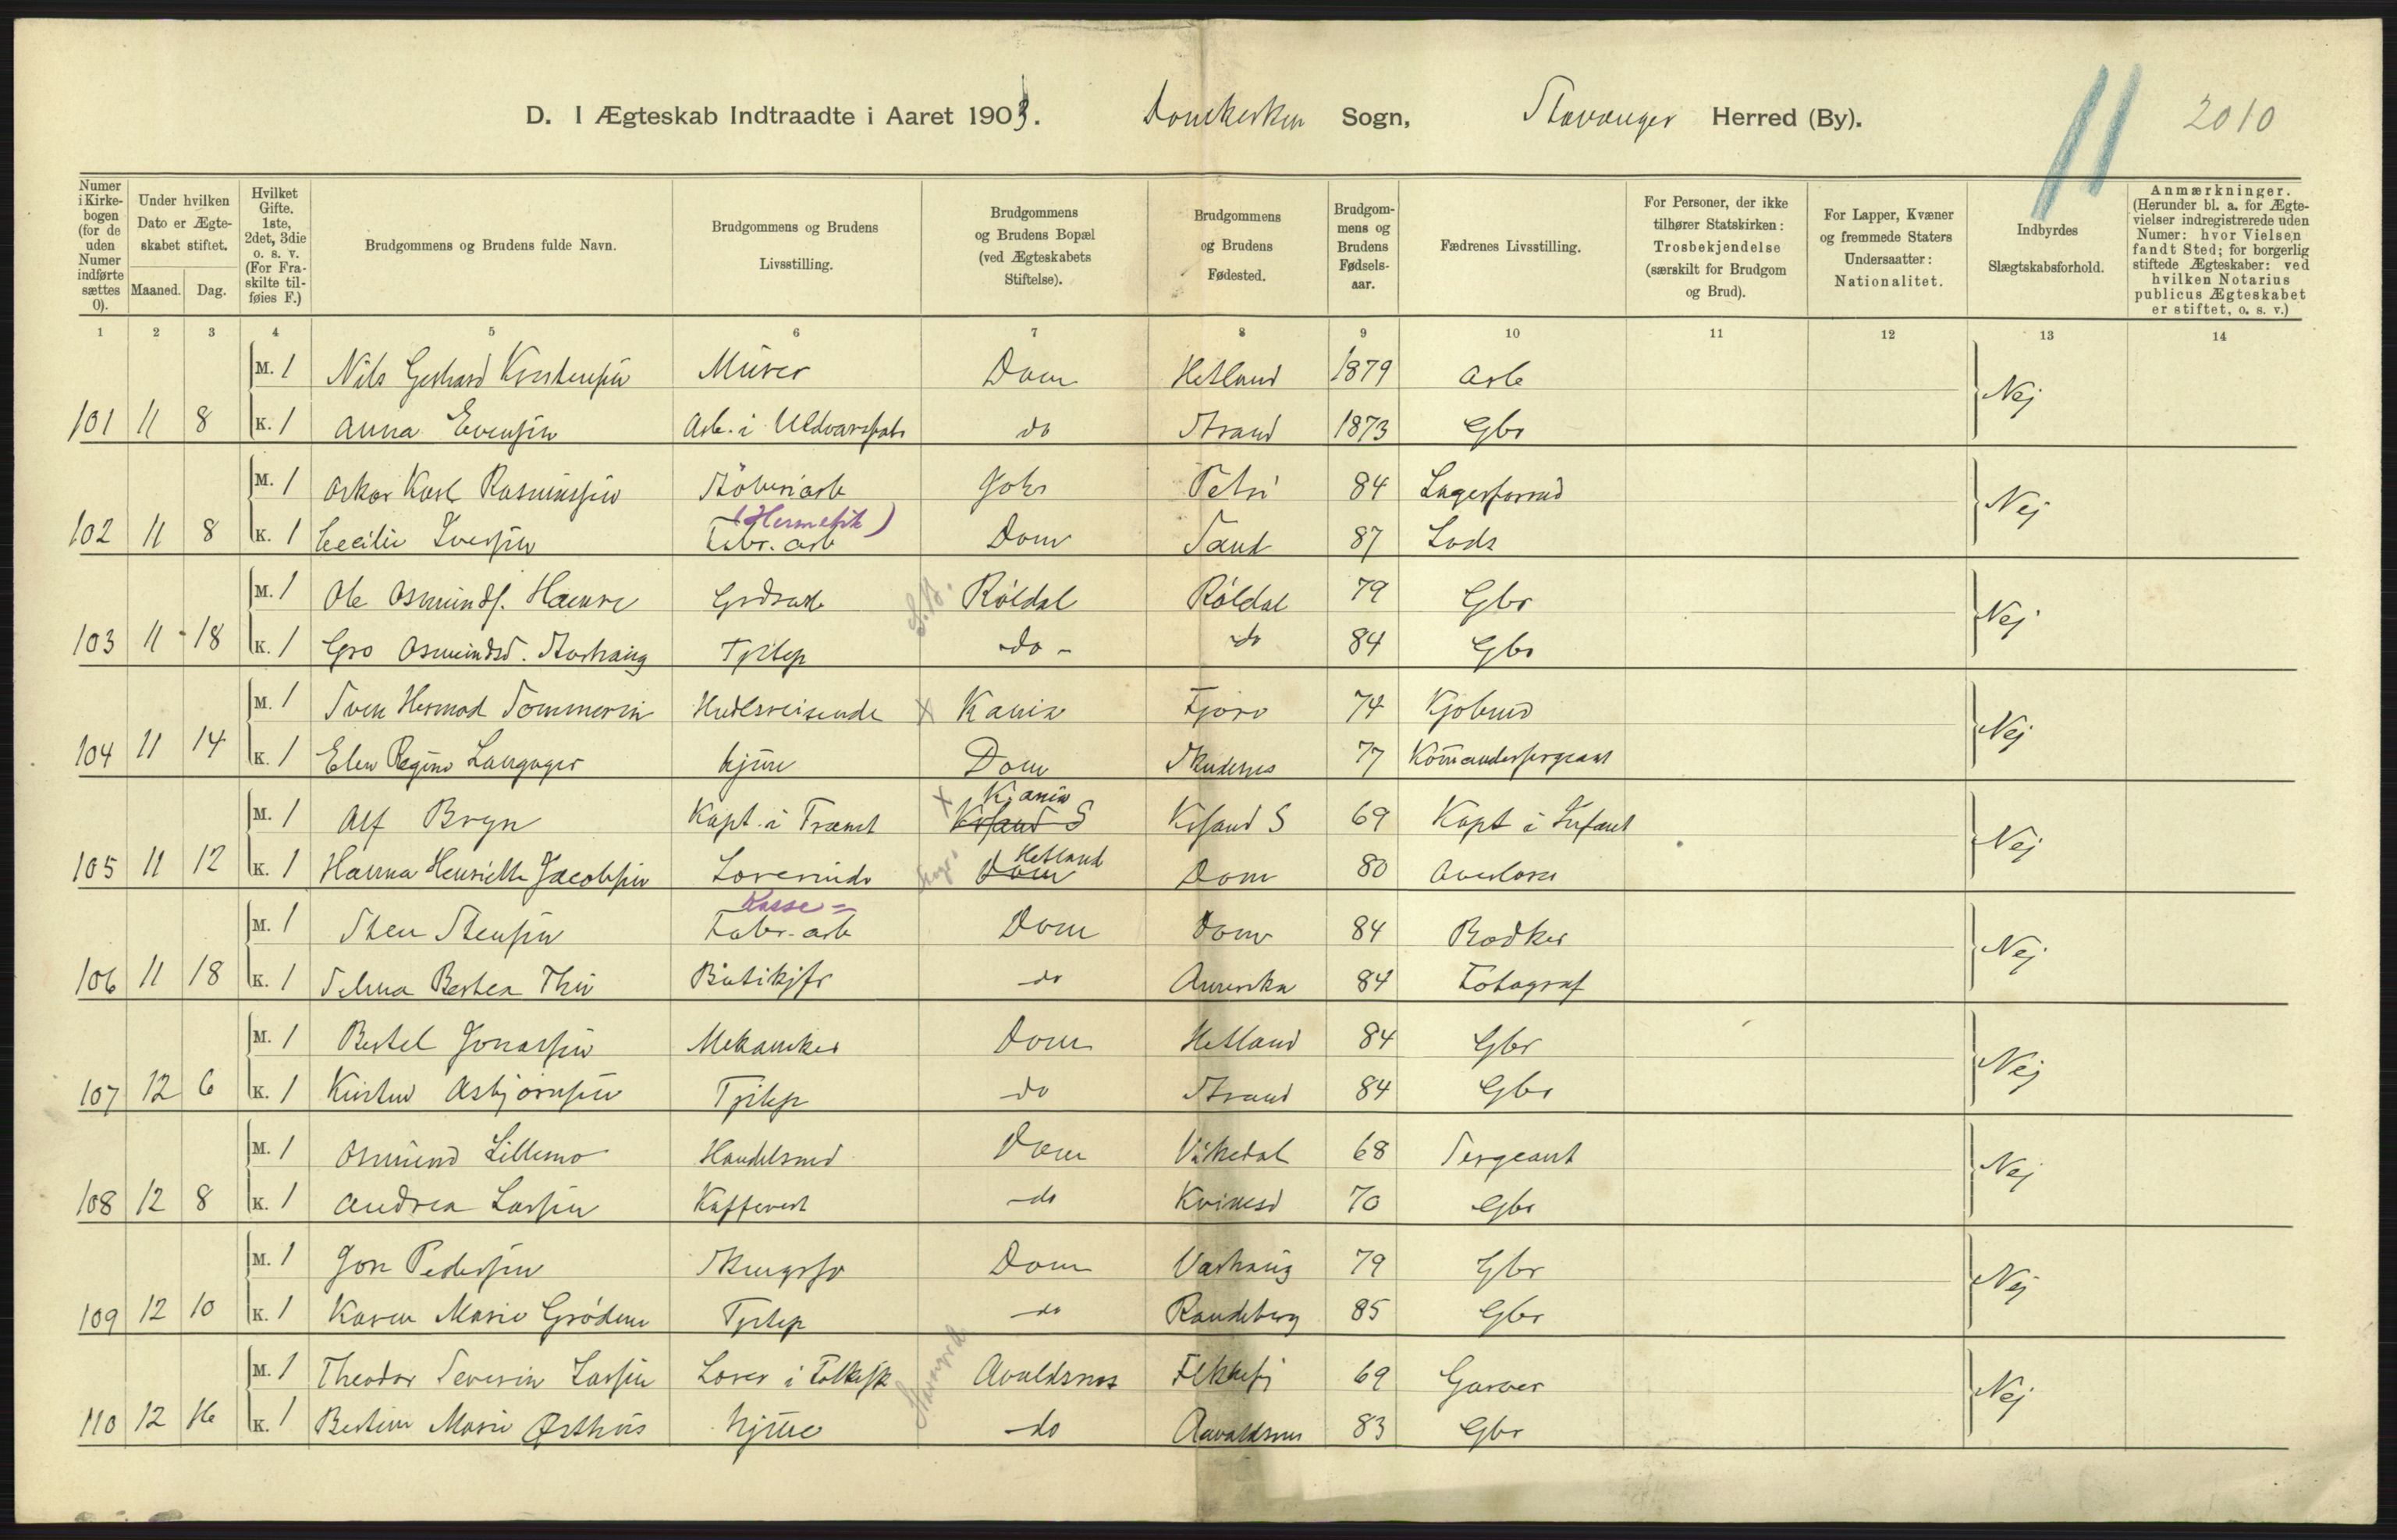 D. I Ægteskab Indtraadte i Aaret 1903. Domkirken Sogn, Stavanger Herred (By). 11 2010
Numer i Kirkebogen (for de uden Numer indførte sættes 0). Under hvilken Dato er Ægteskabet stiftet. Maaned. Dag. Hvilket Gifte. 1ste, 2det, 3die o. s. v. (For Fraskilte tilføies F.) Brudgommens og Brudens fulde Navn. Brudgommens og Brudens Livsstilling. Brudgommens og Brudens Bopæl (ved Ægteskabets Stiftelse). Brudgommens og Brudens Fødested. Brudgommens og Brudens Fødselsaar. Fædrenes Livsstilling. For Personer, der ikke tilhører Statskirken: Trosbekjendelse (særskilt for Brudgom og Brud). For Lapper, Kvæner og fremmede Staters Undersaatter: Nationalitet. Indbyrdes Slægtskabsforhold. Anmærkninger. (Herunder bl. a. for Ægtevielser indregistrerede uden Numer: hvor Vielsen fandt Sted; for borgerlig stiftede Ægteskaber: ved hvilken Notarius publicus Ægteskabet er stiftet, o. s. v.)
1 2 3 4 5 6 7 8 9 10 11 12 13 14
M. 1 Nils Gerhard Kristensen Murer Dom Hetland 1879 Arb Nej
101 11 8 K. 1 Anna Evensen Arb. i Uldvarefabr do Strand 1873 Gbr
M. 1 Oskar Karl Rasmussen Støberiarb Johs Petri 84 Lagerformd Nej
(Hermetik)
102 11 8 K. 1 Cecilie Iversen Fabr. arb Dom Sand 87 Lods
M. 1 Ole Osmunds. Hamre Grdarb Røldal Røldal 79 Gbr Nej
103 11 18 K. 1 Gro Osmundsd. Storhaug Tjltep do do 84 Gbr
M. 1 Sven Hermod Sommerin Hndlsreisende x Kania 74 Kjøbmd Nej
104 11 14 K. 1 Elen Regine Langager hjme Dom Skudenes 77 Komandersergeant
x Kr.ania
M. 1 Alf Bryn Kapt. i Krsand S Krsand S 69 Kapt i Infant Nej
Hetland
105 11 12 K. 1 Hanna Henriette Jacobsen Lærerinde Dom Dom 80 Overlærer
Kasse=
M. 1 Sten Stensen Fabr. arb Dom Dom 84 Bødker Nej
106 11 18 K. 1 Selma Bertea Thu Butikjfr do Amerika 84 Fotograf
M. 1 Bertel Jonassen Mekaniker Dom Hetland 84 Gbr Nej
107 12 6 K. 1 Kirstine Asbjørnsen Tjltep do Strand 84 Gbr
M. 1 Osmund Lillemo Handelsmd Dom Vikedal 68 Sergeant Nej
108 12 8 K. 1 Andrea Larsen Kaffevert do Kvinesd 70 Gbr
M. 1 Jon Pedersen Dom Varhaug 79 Gbr Nej
109 12 10 K. 1 Karen Marie Grødem Tjltep do Randeberg 85 Gbr
M. 1 Theodor Severin Larsen Lærer i Folkesk Avaldsnes Flekkefj 69 Garver Nej
110 12 16 K. 1 Bertine Marie Østhus hjme do Aavaldsnes 83 Gbr